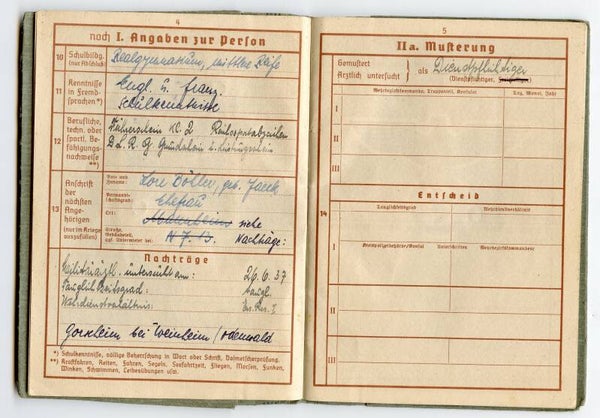 4
noch I. Angaben zur Person
10 Schulbildg. (nur Abschluß) Realgymnasium, mittlere Reife
11 Kenntnisse in Fremdsprachen*) Engl. u. franz. Schulkenntnisse
12 Berufliche, techn. oder sportl. Befähigungsnachweise **) Führerschein Kl. 2 Reichssportabzeichen
D.L.R.G Grundschein u. Leistungsschein
13 Anschrift der nächsten Angehörigen (nur im Kriege auszufüllen)
Vor- und Zuname: Lore Döller, geb.
Verwandtschaftsgrad: Ehefrau
Ort: siehe
N 7. 13. Nachträge:
Nachträge
Militärärztl. untersucht am: 26.6.37
Tauglichkeitsgrad: taugl.
Wehrdienstverhältnis: Ers. Res. I
bei Weinheim/Odenwald
*) Schulkenntnisse, völlige Beherrschung in Wort oder Schrift, Dolmetscherprüfung.
**) Kraftfahren, Reiten, Fahren, Segeln, Seefahrtzeit, Fliegen, Morsen, Funken, Winken, Schwimmen, Leibesübungen usw.
5
IIa. Musterung
Gemustert
Ärztlich untersucht } als Dienstpflichtiger
(Dienstpflichtiger,
Wehrbezirkskommando, Truppenteil, Konsulat Tag, Monat, Jahr
I
II
III
Entscheid
14 Tauglichkeitsgrad Wehrdienstverhältnis
I
Kreispolizeibehörde/Konsul Unterschriften Wehrbezirkskommandeur
II
III